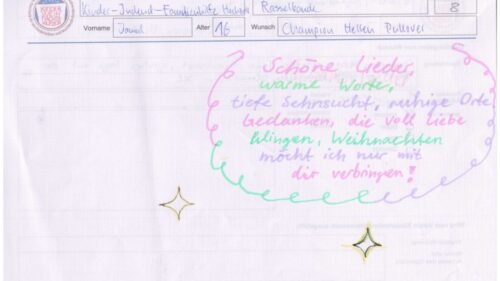 Kinder-Jugend-Familienhilfe Rasselbande 8
Vorname Alter 16 Wunsch Champion Hellen Pullover
Schöne Lieder,
warme Worte,
tiefe Sehnsucht, ruhige Orte
Gedanken, die voll liebe
klingen, Weihnachten
möcht ich nur mit
dir verbringen!